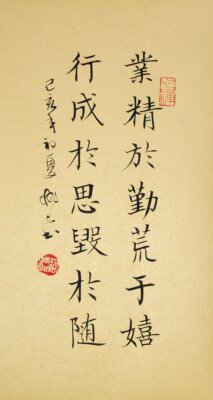 業精於勤荒于嬉
行成於思毀於隨
己亥年初夏